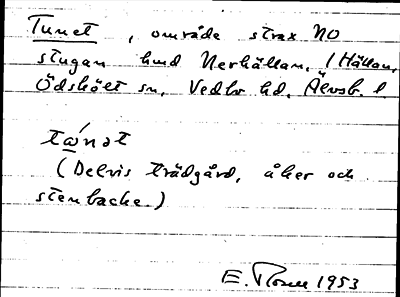 Tunet, område strax NO
stugan hmd Nerhällan, /Hällan,
Ödskölt sn, Vedbo hd, Älvsb. l.
tώnət
(Delvis trädgård, åker och
stenbacke.)
E. 1953